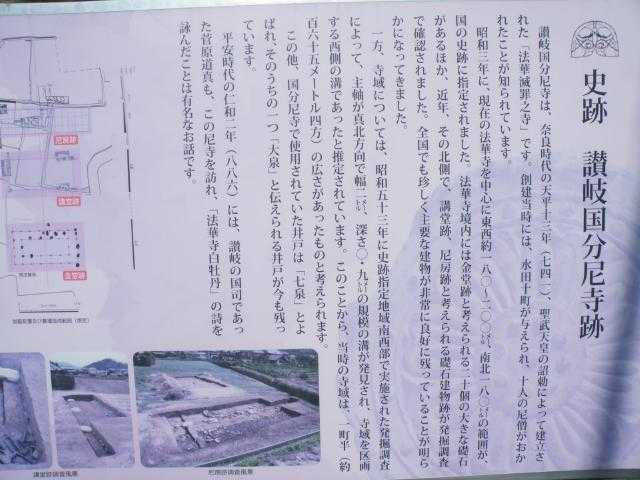 史跡 讃岐国分尼寺跡
讃岐国分尼寺は、奈良時代の天平十三年(七四一)、聖武天皇の詔勅によって建立さ
れた「法華滅罪之寺」です。創建当時には、水田十町が与えられ、十人の尼僧がおか
れたことが知られています。
昭和三年に、現在の法華寺を中心に東西約一八〇〜二〇〇㍍、南北一八〇㍍の範囲が、
国の史跡に指定されました。法華寺境内には金堂跡と考えられる二十個の大きな礎石
があるほか、近年、その北側で、講堂跡、尼房跡と考えられる礎石建物跡が発掘調査
で確認されました。全国でも珍しく主要な建物が非常に良好に残っていることが明ら
かになってきました。
一方、寺域については、昭和五十三年に史跡指定地域南西部で実施された発掘調査
によって、主軸が真北方向で幅二㍍、深さ〇・九㍍の規模の溝が発見され、寺域を区画
する西側の溝であったと推定されています。このことから、当時の寺域は、一町半(約
百六十五メートル四方)の広さがあったものと考えられます。
この他、国分尼寺で使用されていた井戸は「七泉」とよ
ばれ、そのうちの一つ「大泉」と伝えられる井戸が今も残っ
ています。
平安時代の仁和二年(八八六)には、讃岐の国司であっ
た菅原道真も、この尼寺を訪れ、「法華寺白牡丹」の詩を
詠んだことは有名なお話です。
尼房跡
講堂跡
金堂跡
講堂跡調査風景
尼房跡調査風景